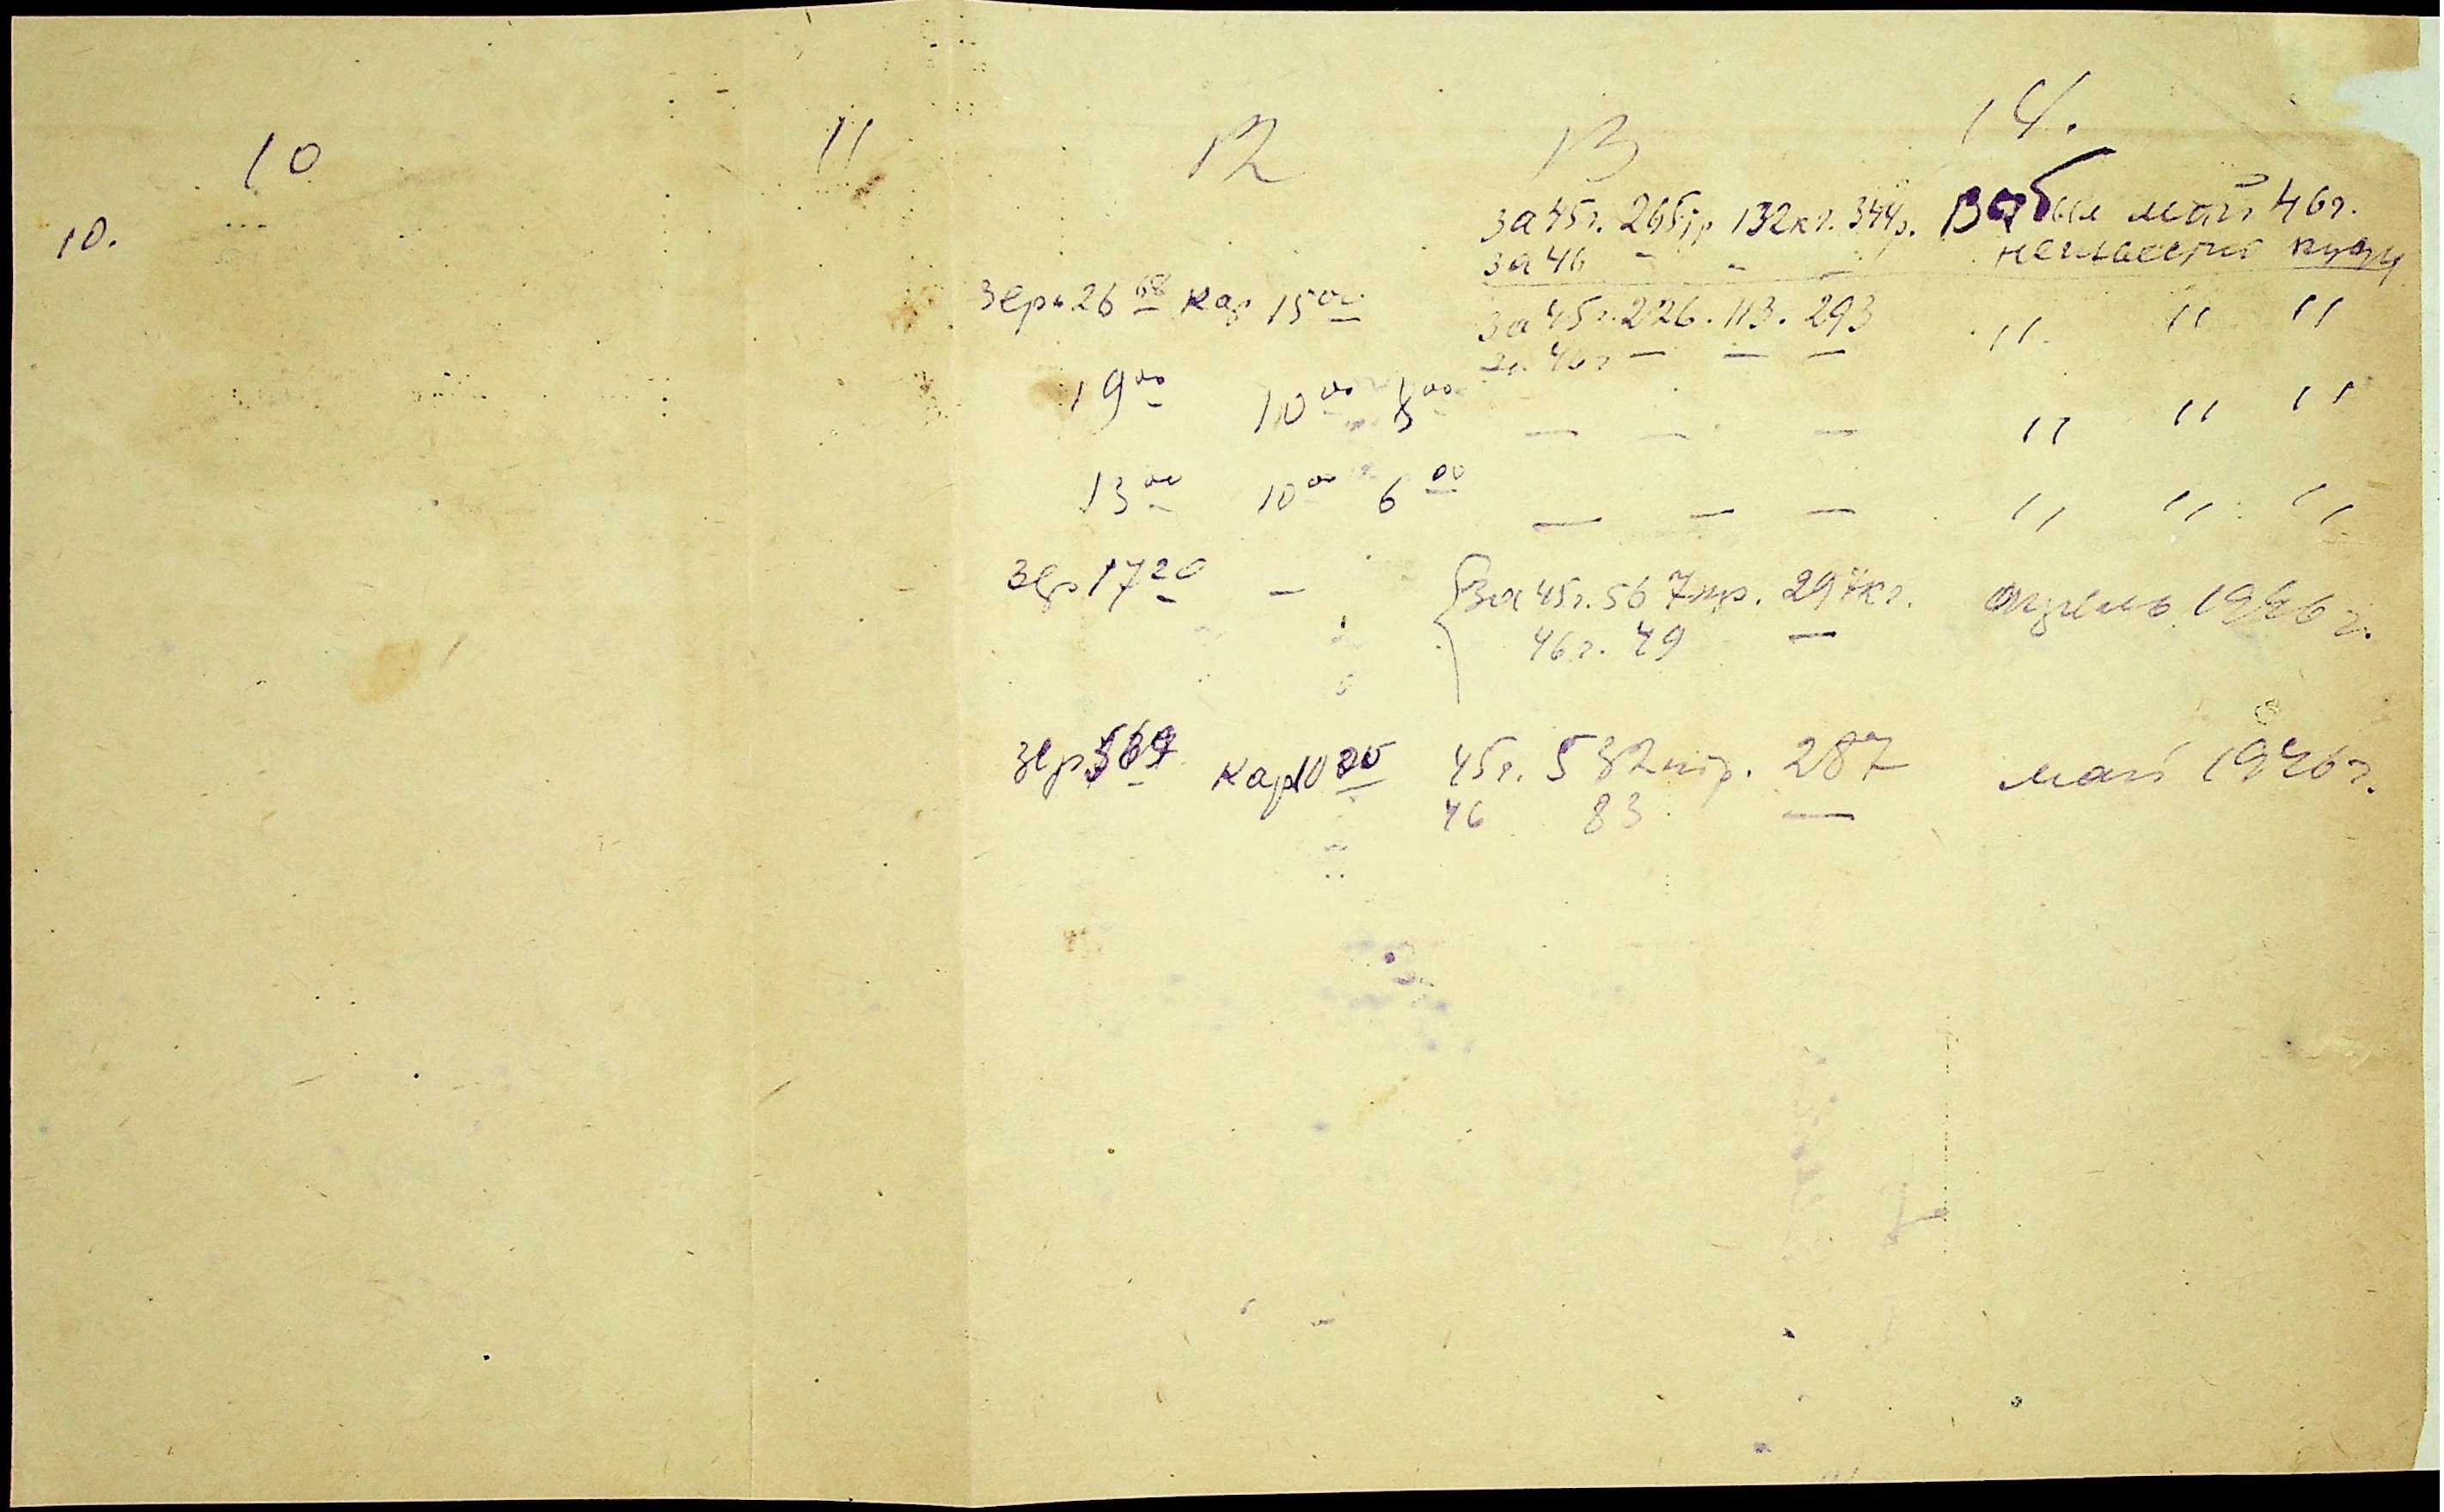 10 11 12 13 14.
10. за 45г. 265тр 132кг. 344р. Выбыл май 46г.
за 46 - - - неизвестно куда
Зерн 26 68 кар 15 00 За 45г. 226. 113. 293 " " "
за 46г — — —
19 00 10 00 5 00 — — — " " "
13 00 10 00 6 00 — — — " " "
Зер 17 20 — За 45г. 567тр. 297кг. апрель 1946г.
46г. 49 —
Зер 569 кар 10 00 45г. 582тр. 287 май 1946г.
46 83 —